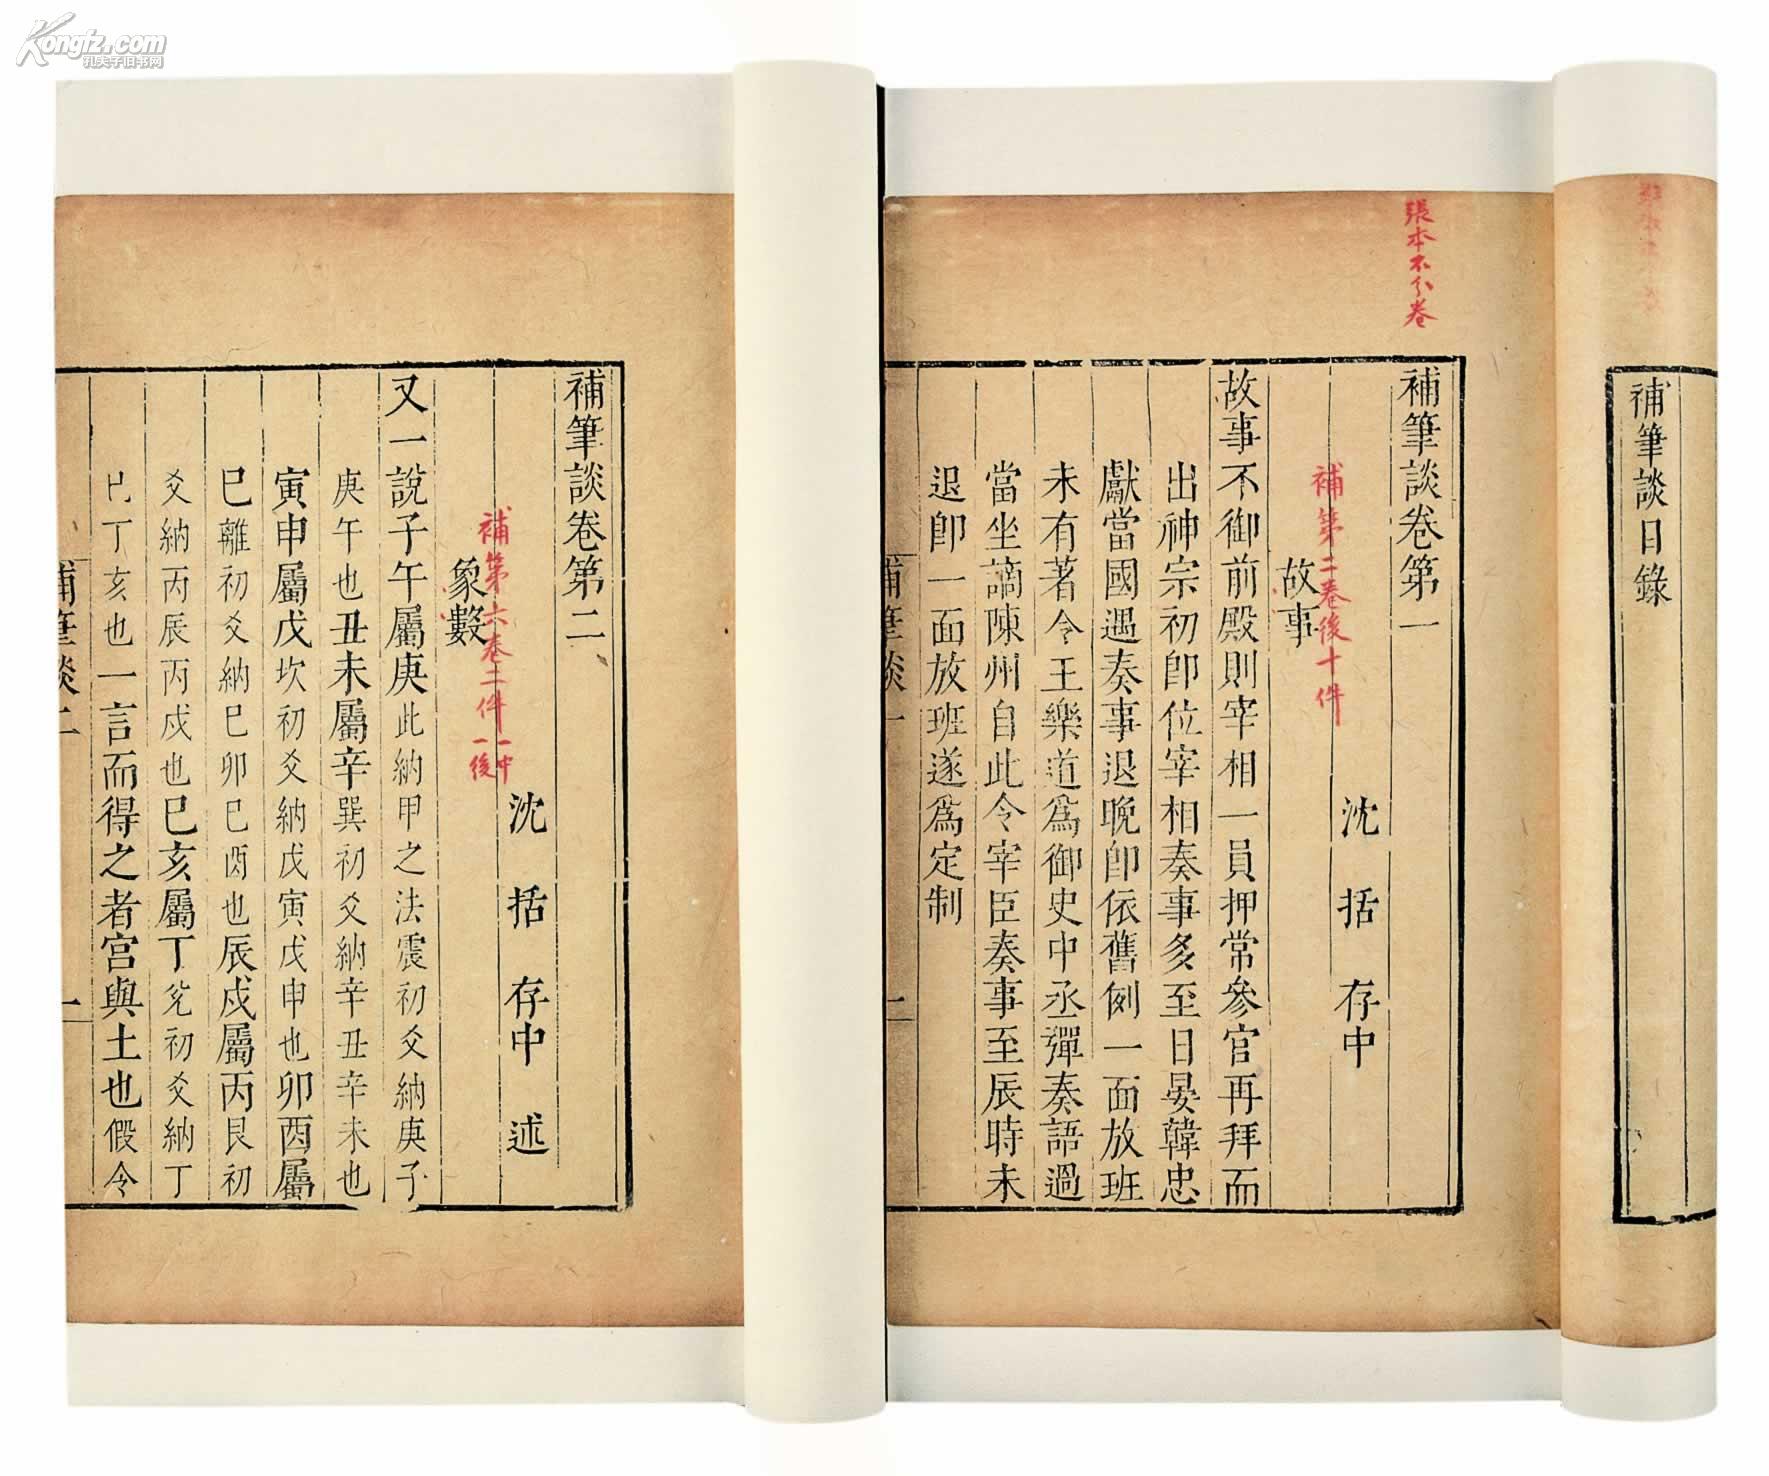 Kongfz.com
孔夫子旧书网
補筆談目錄
張本不分卷
補筆談卷第一
沈括存中
補第二卷後十件
故事
故事不御前殿則宰相一員押常參官再拜而
出神宗初卽位宰相奏事多至日晏韓忠
獻當國遇奏事退晚卽依舊例一面放班
未有著令王樂道爲御史中丞彈奏語過
當坐謫陳州自此令宰臣奏事至辰時未
退卽一面放班遂爲定制
補筆談卷第二
沈括存中述
補第六卷二件一中一後
象數
又一說子午屬庚此納甲之法震初爻納庚子
庚午也丑未屬辛巽初爻納辛丑辛未也
寅申屬戊坎初爻納戊寅戊申也卯酉屬
巳離初爻納巳卯巳酉也辰戌屬丙艮初
爻納丙辰丙戌也巳亥屬丁兌初爻納丁
巳丁亥也一言而得之者宮與土也假令